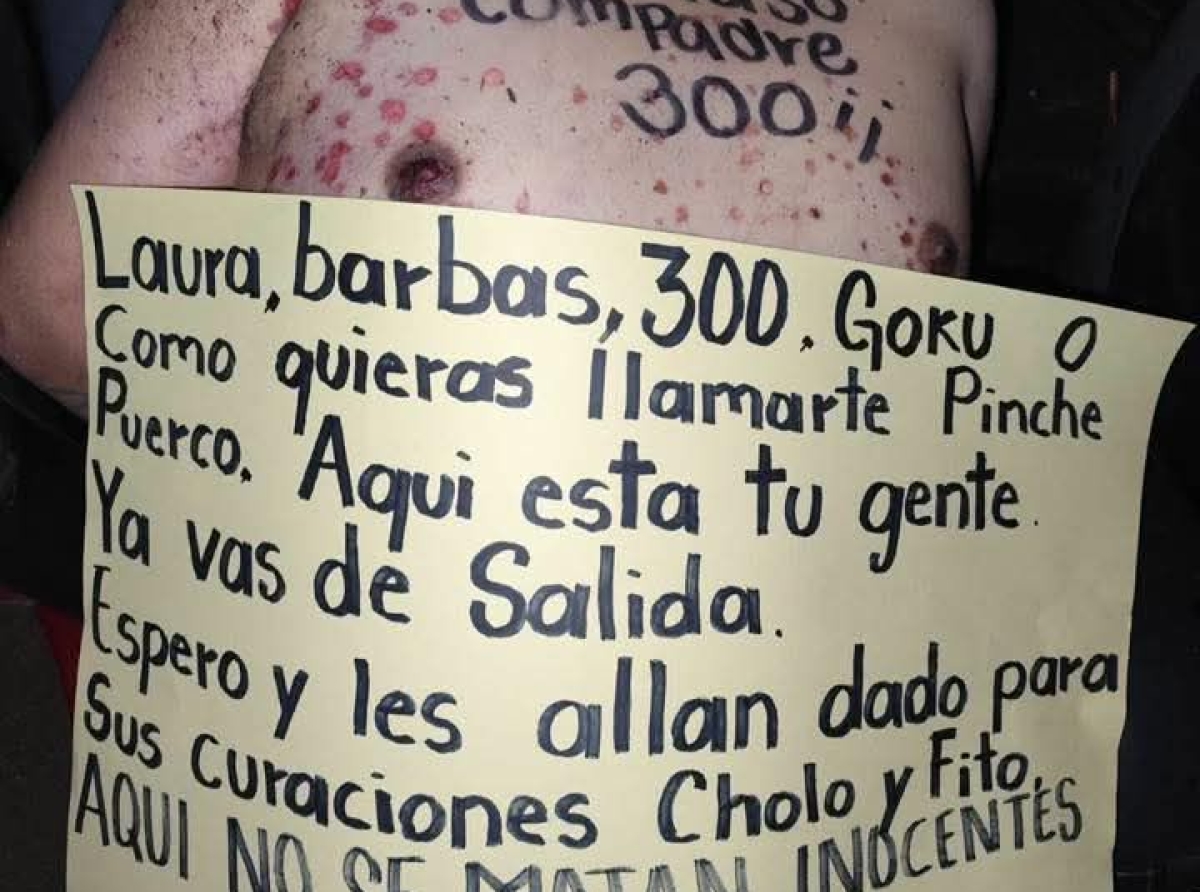 compadre
300¡¡
Laura, barbas, 300. Goku o
Como quieras llamarte Pinche
Puerco. Aqui esta tu gente.
Ya vas de Salida.
Espero y les allan dado para
Sus curaciones Cholo y Fito.
AQUI NO SE MATAN INOCENTES